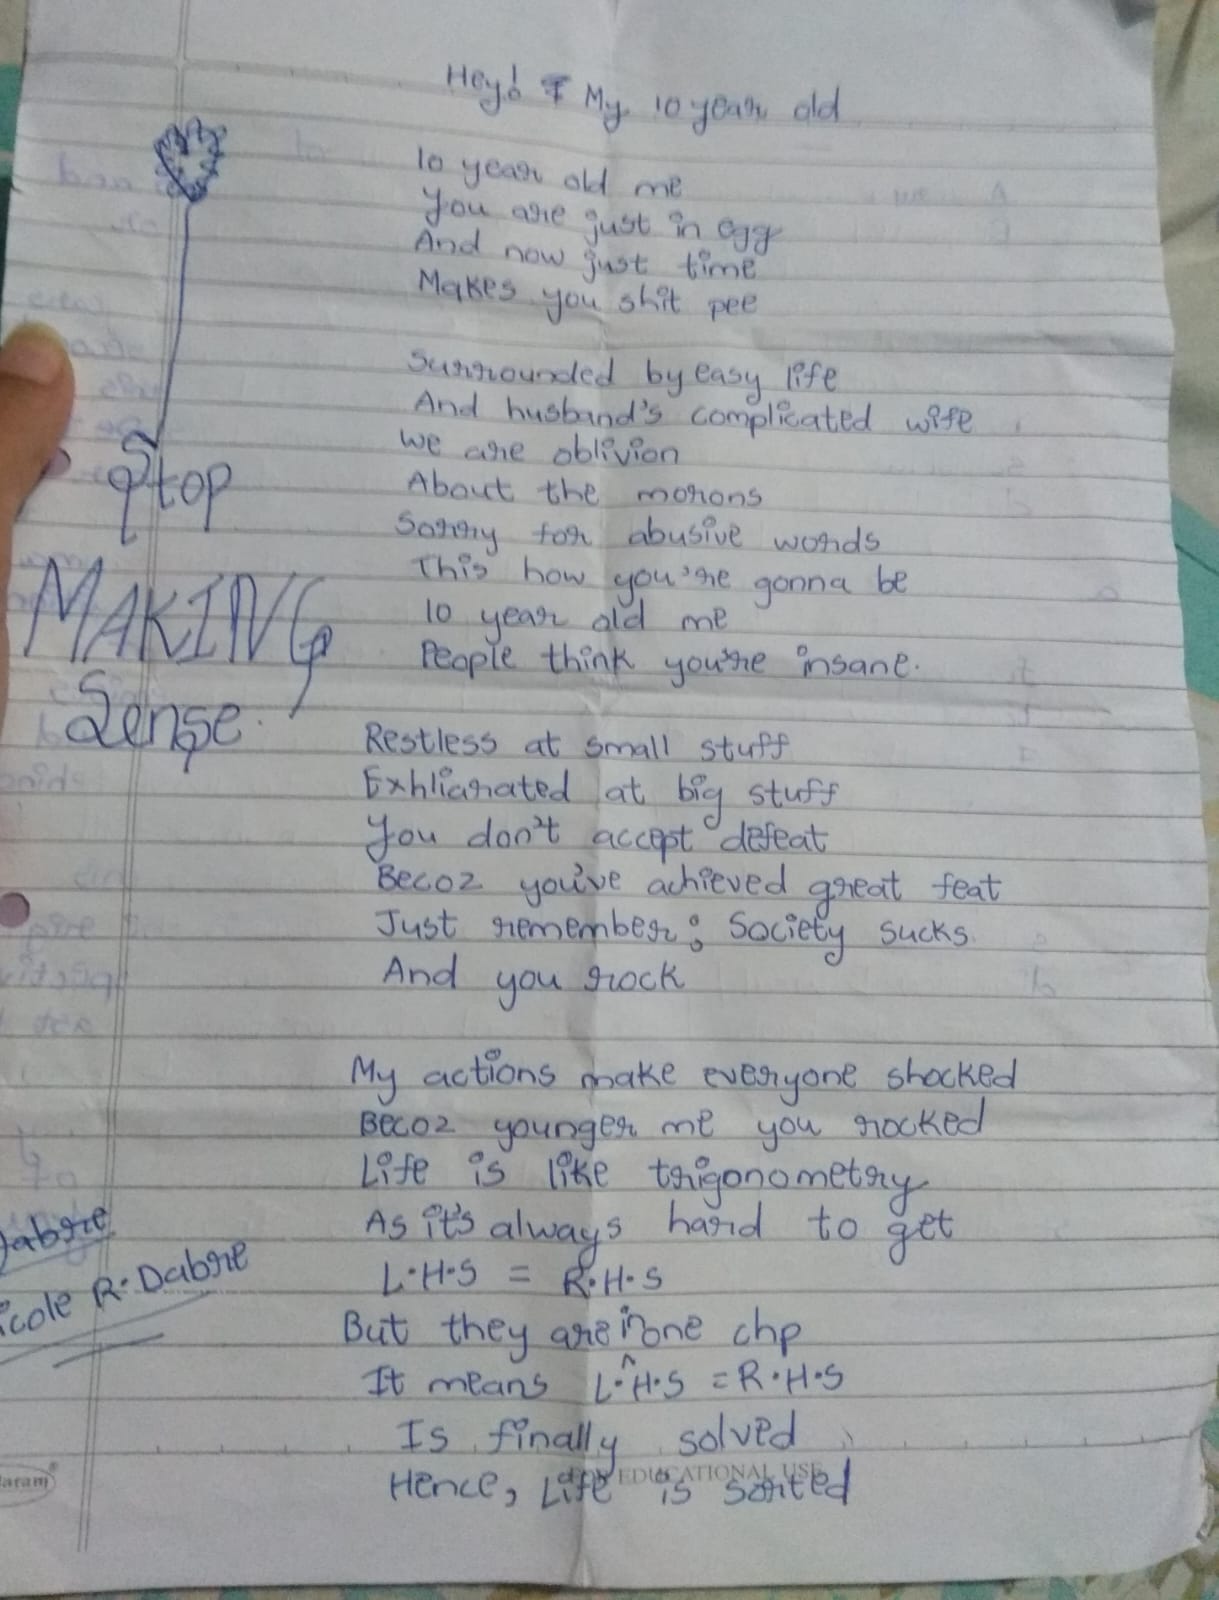 Hey! My 10 year old
10 year old me
You are just in egg
And now just time
Makes you shit pee
Surrounded by easy life
And husband's complicated wife
We are oblivion
About the morons
Sorry for abusive words
This how you're gonna be
10 year old me
People think you're insane.
Stop
MAKING
Sense.
Restless at small stuff
Exhliarated at big stuff
You don't accept defeat
Becoz you've achieved great feat
Just remember: Society sucks
And you rock
My actions make everyone shocked
Becoz younger me you rocked
Life is like trigonometry
As it's always hard to get
L.H.S = R.H.S
But they are in one chp
It means L.H.S = R.H.S
Is finally solved
Hence, Life is sorted
Dabre
icole R. Dabre
EDUCATIONAL USE